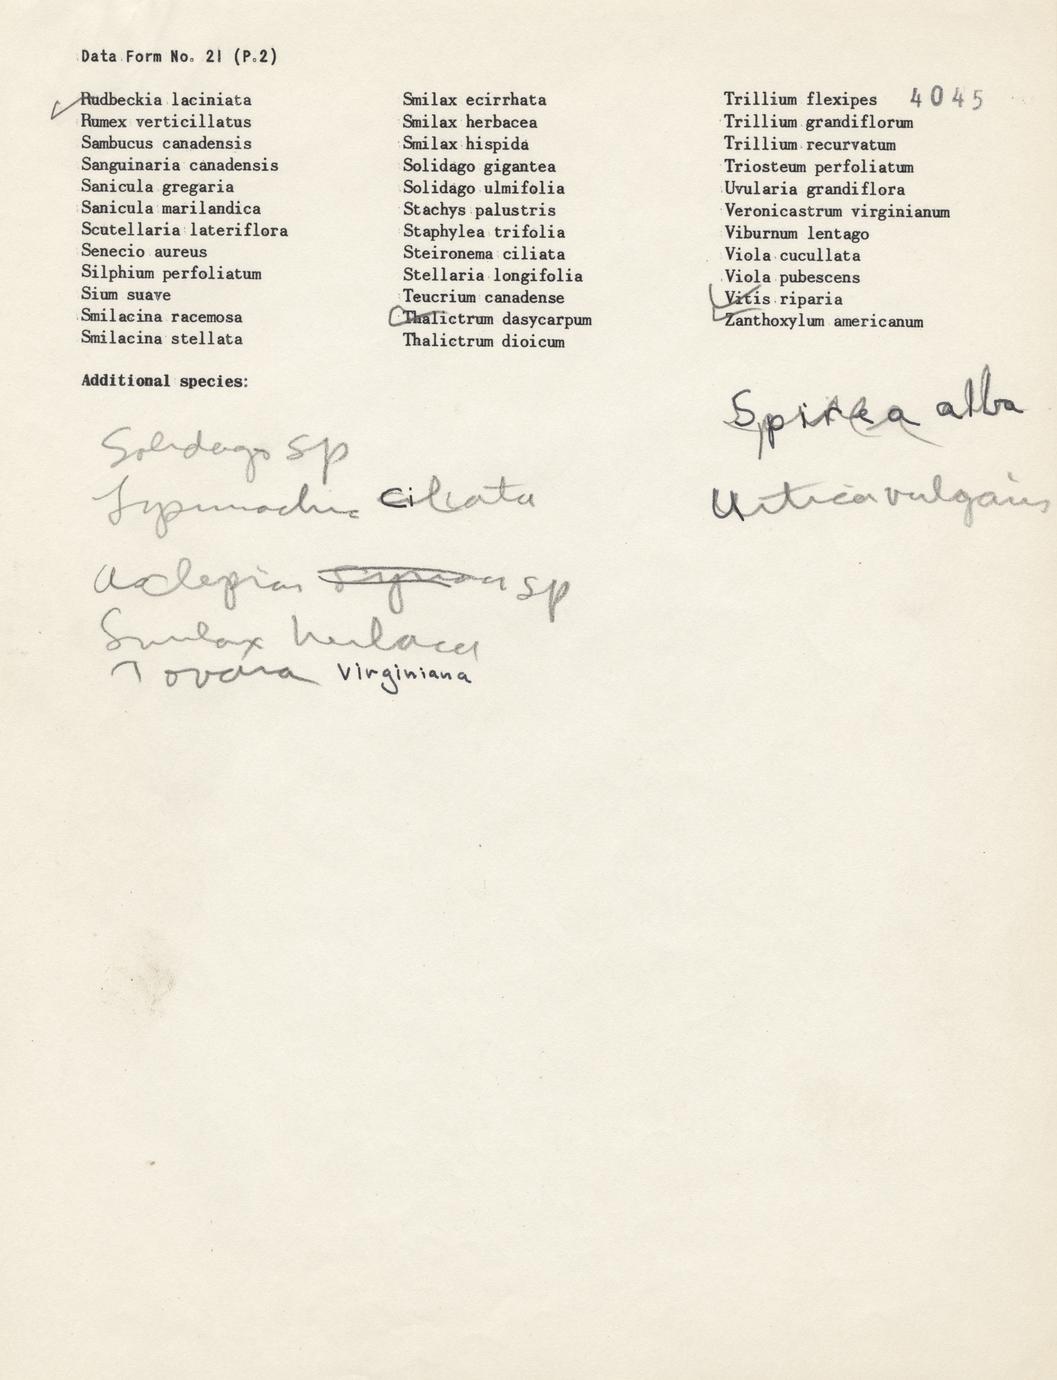 Data Form No. 21 (P.2)
4045
Rudbeckia laciniata
Rumex verticillatus
Sambucus canadensis
Sanguinaria canadensis
Sanicula gregaria
Sanicula marilandica
Scutellaria lateriflora
Senecio aureus
Silphium perfoliatum
Sium suave
Smilacina racemosa
Smilacina stellata
Smilax ecirrhata
Smilax herbacea
Smilax hispida
Solidago gigantea
Solidago ulmifolia
Stachys palustris
Staphylea trifolia
Steironema ciliata
Stellaria longifolia
Teucrium canadense
Thalictrum dasycarpum
Thalictrum dioicum
Trillium flexipes
Trillium grandiflorum
Trillium recurvatum
Triosteum perfoliatum
Uvularia grandiflora
Veronicastrum virginianum
Viburnum lentago
Viola cucullata
Viola pubescens
Vitis riparia
Zanthoxylum americanum
Additional species:
Solidago sp
Lysimachia ciliata
Asclepias sp
Smilax herbacea
Tovara Virginiana
Spirea alba
Urtica vulgaris